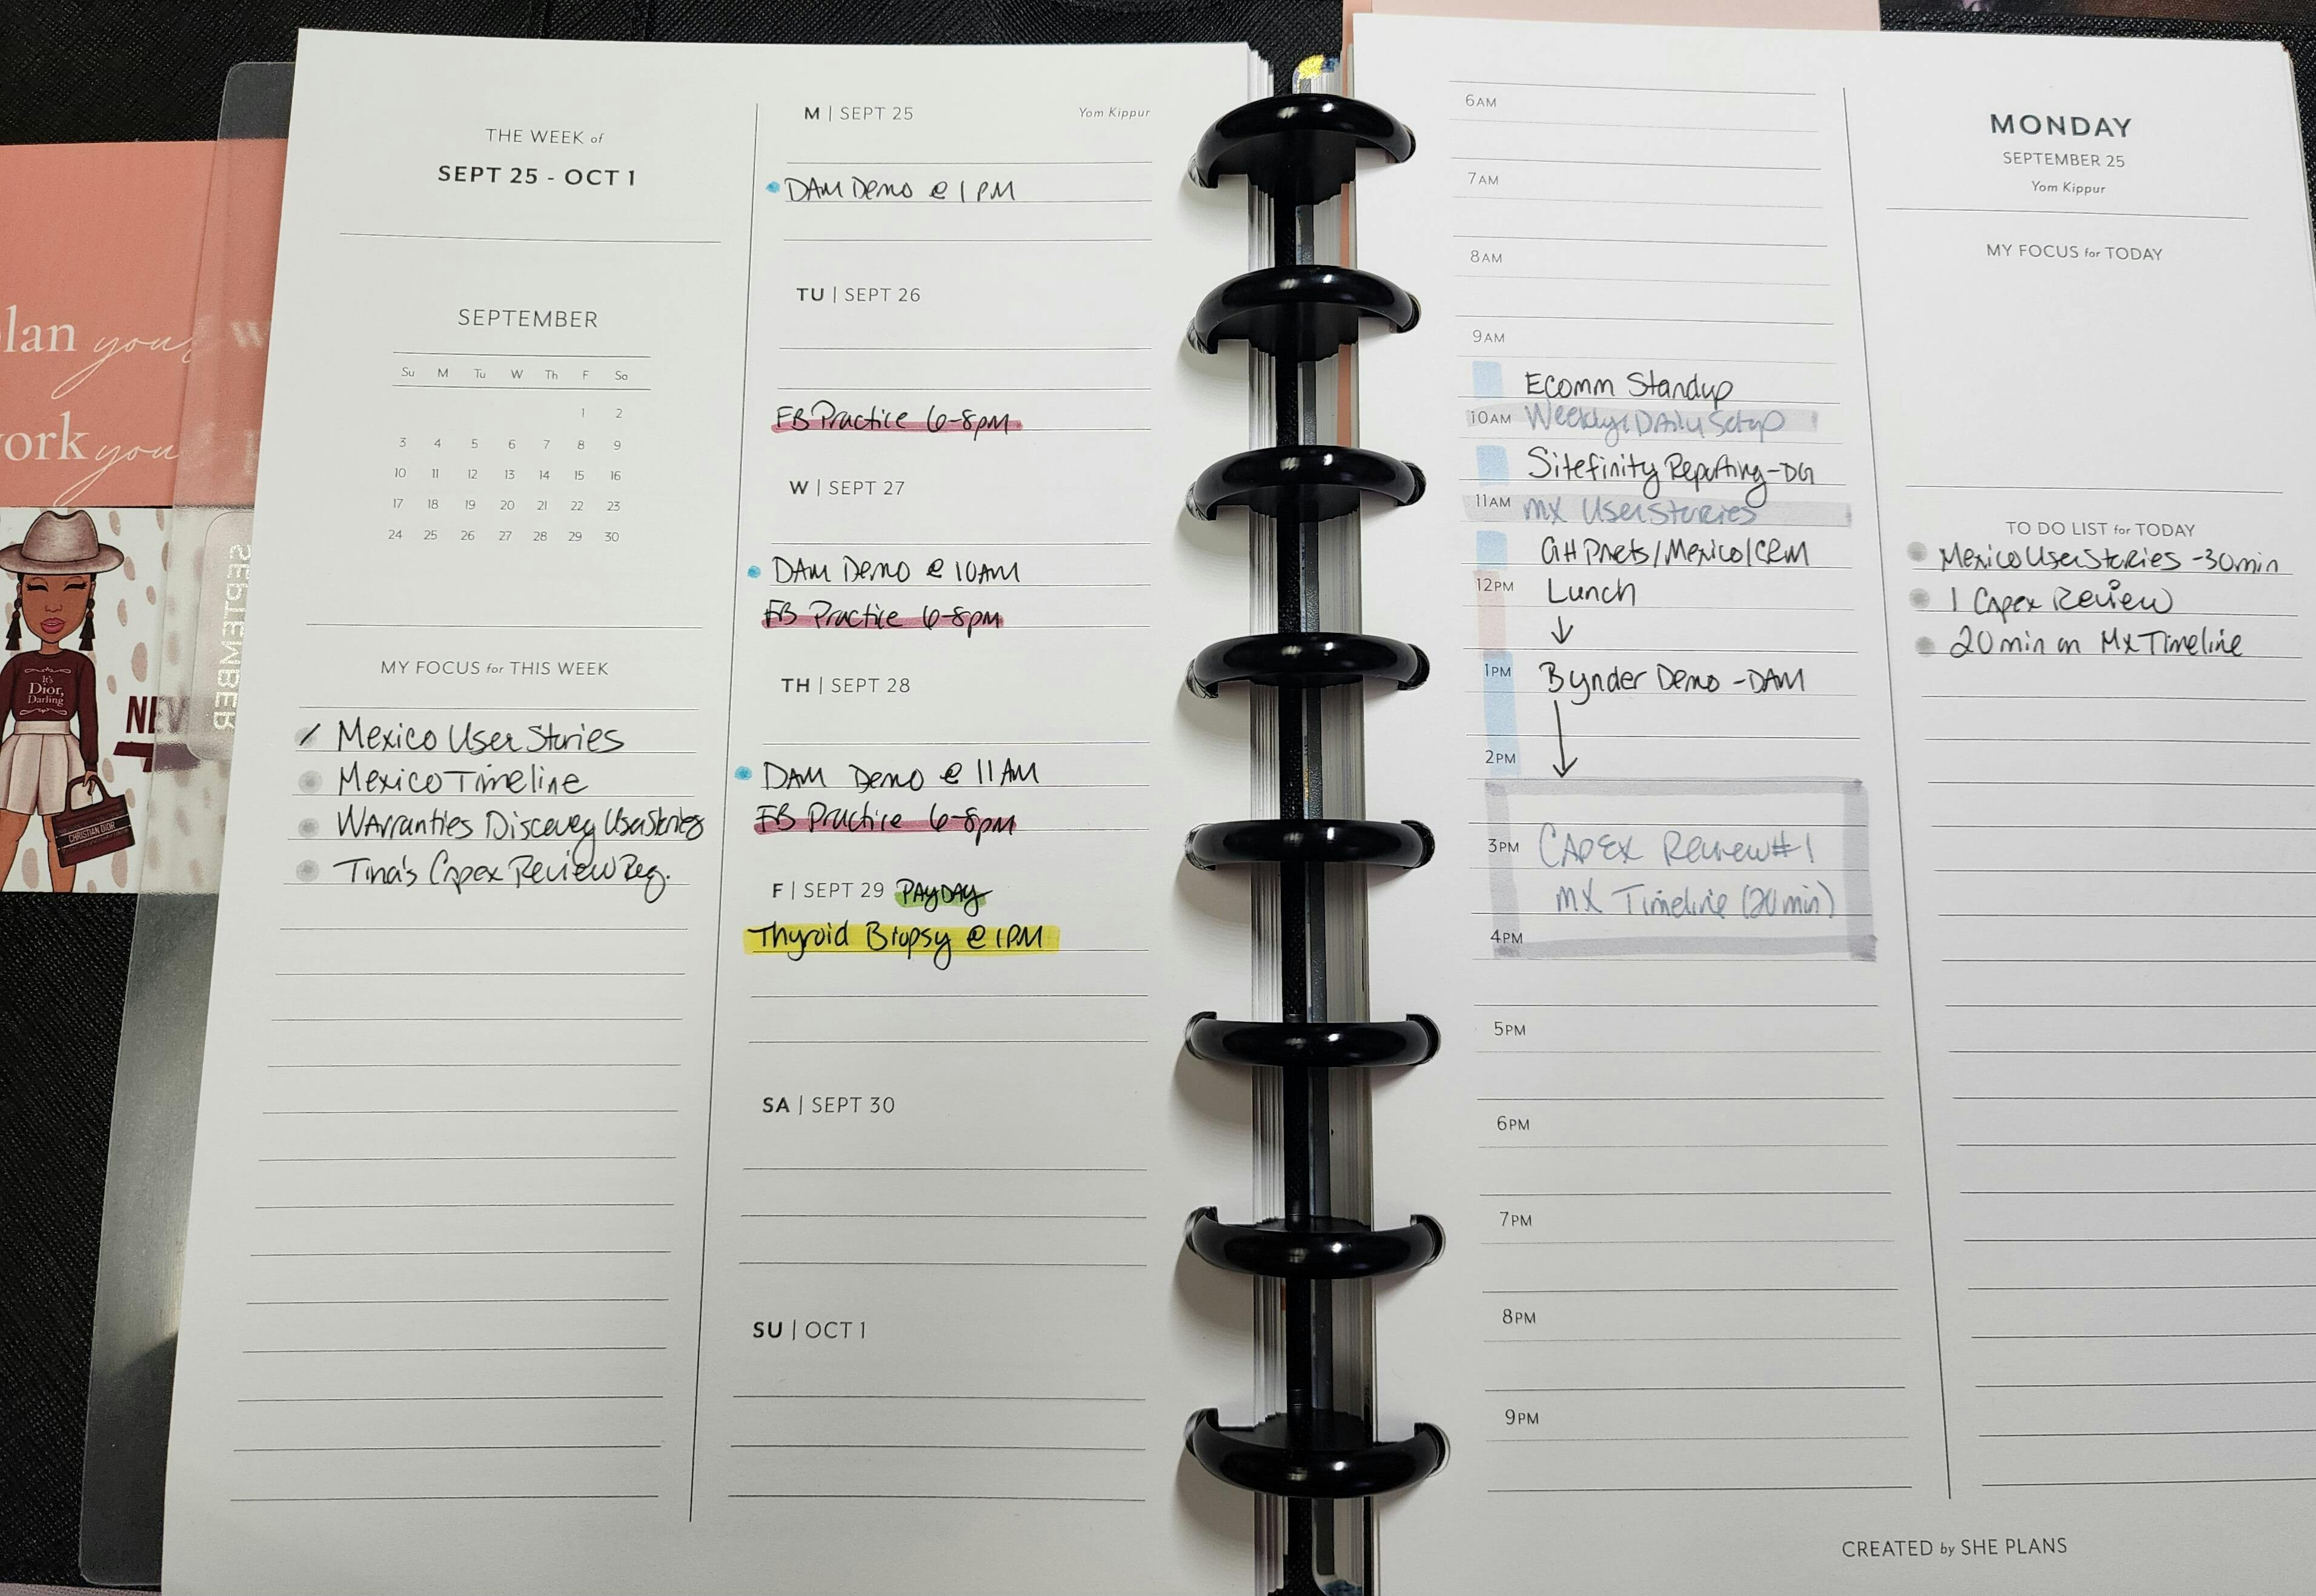 plan your
work your
It's
Dior,
Darling
CHRISTIAN DIOR
NEV
SEPTEMBER
THE WEEK of
SEPT 25 - OCT 1
SEPTEMBER
Su M Tu W Th F Sa
1 2
3 4 5 6 7 8 9
10 11 12 13 14 15 16
17 18 19 20 21 22 23
24 25 26 27 28 29 30
MY FOCUS for THIS WEEK
Mexico User Stories
Mexico Timeline
Warranties Discovery User Stories
Tina's Capex Review Req.
M | SEPT 25 Yom Kippur
DAM Demo @ 1 PM
TU | SEPT 26
FB Practice 6-8pm
W | SEPT 27
DAM Demo @ 10AM
FB Practice 6-8pm
TH | SEPT 28
DAM Demo @ 11AM
FB Practice 6-8pm
F | SEPT 29 PAYDAY
Thyroid Biopsy @ 1PM
SA | SEPT 30
SU | OCT 1
6AM
7AM
8AM
9AM
Ecomm Standup
10AM Weekly & Daily Setup
Sitefinity Reporting-DG
11AM MX User Stories
/Mexico/CRM
12PM Lunch
1PM Bynder Demo -DAM
2PM
3PM CAPEX Review #1
MX Timeline (20min)
4PM
5PM
6PM
7PM
8PM
9PM
MONDAY
SEPTEMBER 25
Yom Kippur
MY FOCUS for TODAY
TO DO LIST for TODAY
Mexico User Stories -30min
1 Capex Review
20min on Mx Timeline
CREATED by SHE PLANS